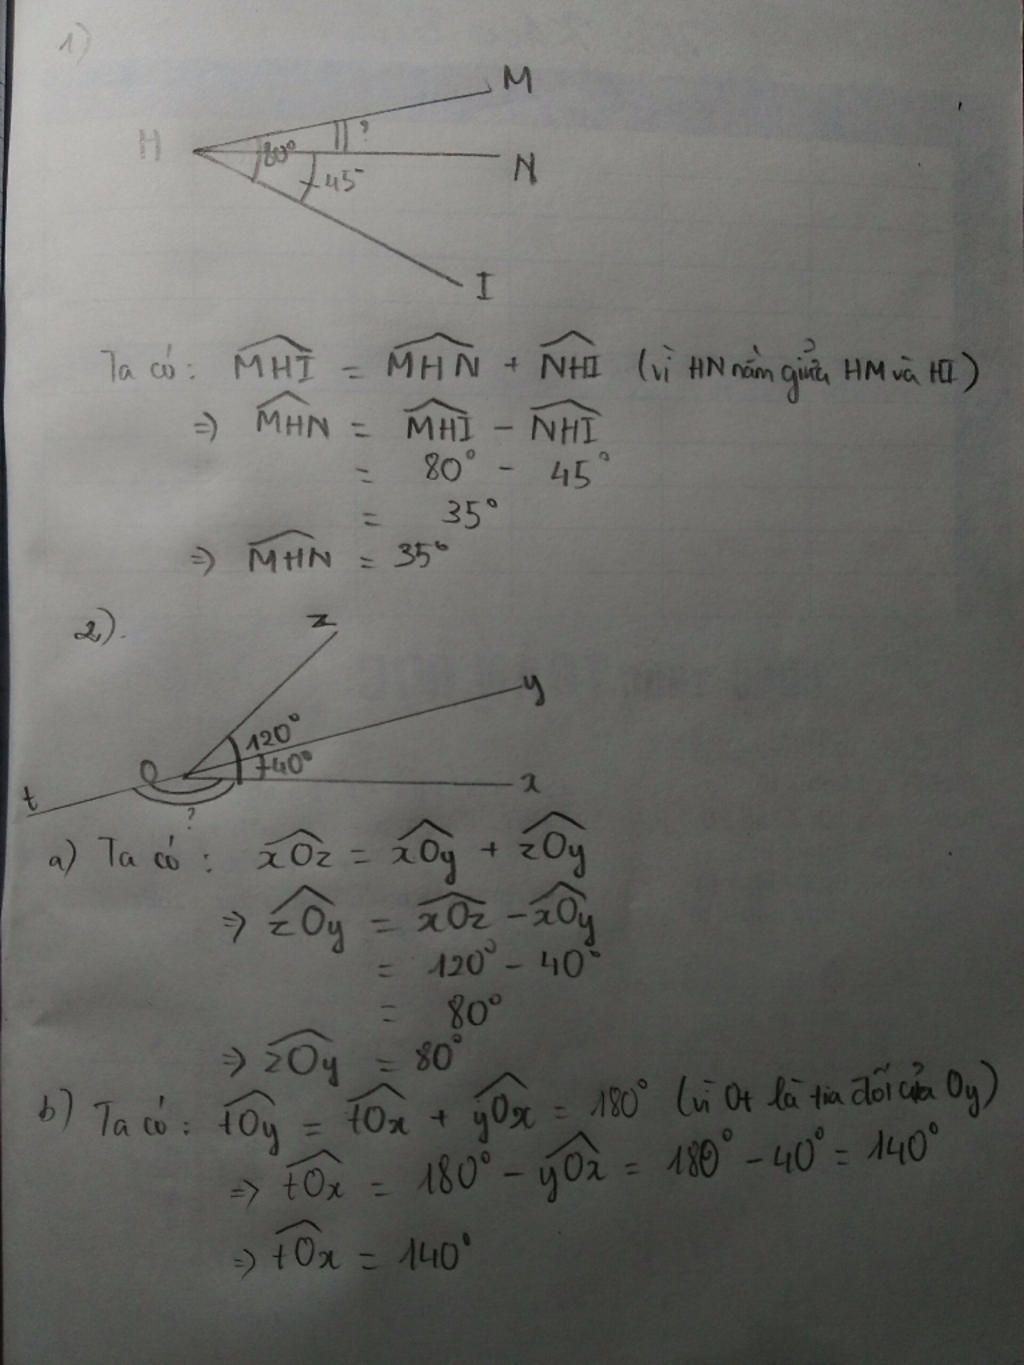 1)
M
H
80°
?
N
45
I
Ta có: MHI = MHN + NHI (vì HN nằm giữa HM và HI)
=> MHN = MHI - NHI
= 80° - 45°
= 35°
=> MHN = 35°
2).
z
y
120°
40°
O
x
t
?
a) Ta có: xOz = xOy + zOy
=> zOy = xOz - xOy
= 120° - 40°
= 80°
=> zOy = 80°
b) Ta có: tOy = tOx + yOx = 180° (vì Ot là tia đối của Oy)
=> tOx = 180° - yOx = 180° - 40° = 140°
=> tOx = 140°